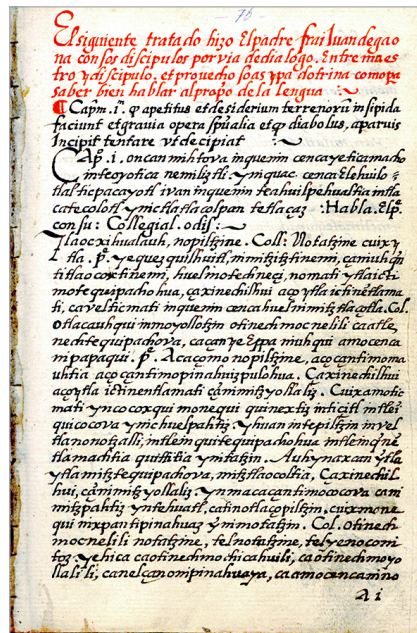 76
El siguiente tratado hizo El padre frui Iuan degao
na con sos discipulos por via de dia logo. Entre maes
tro y discipulo. et provecho soas ypa dotrina como pa
saber bien hablar al propo de la lengua
Capm. i.m q apetitus et desiderium terrenorū insipida
faciunt et gravia opera spūalia et q diabolus, aparuis
Incipit tentare vt decipiat
Cap. i. oncan mihtova inquenin cenca yeticamacho
inteoyotica nemiliztli. yniquac. cenca tlehuilo
tlaltic pacayotl ivan inquenin tea huilpehualtia intla
catecolotl ynictlatlacolpan tetlaçaz :Habla. El p.
con su: Collegial. odisi:
Tlaoc xihualauh, nopiltzine. Coll: Notatzine cuix y
tla. p. yequezquilhuitl, nimitzitztinemi, ça niuhqin
titlaocoxtinemi, huel motech neçi, nomati ytla icti
motequipachohua, ça xinechilhui aço ytla ictinētlama
ti, ca vel ticmati inquenin cenca huel nimitztlaçotla. Col.
Otlacauhqui inmoyollotzin otinechmocnelili ca atle,
nechtequipachova, ca çan ye ypa niuhqui amo cenca
nipapaqui. p. Acaçomo nopiltzine, aço çantimoma
uhtia aço çantimopinahuizpulohua. Caxinechilhui
aço ytla ictinentlamati ca nimitzyollaliz. Cuix amo tic
mati ynco coxqui monequi quinextiz inticitl intlei
quicocova ynic huelpahtiz. yhuan intepiltzin invel
tlanonotzalli; intlein quitequipachohua intlein q ne
tlamaditia quittitia ynitatzin. Auh ynaxcan ytla
ytla mitztequipachova, mitztlaocoltia, Caxinechil
hui, ca nimitzyollaliz. yn maca çantimococova ca ni
mitzpahtiz yntehuatl, catinotlaçopiltzin, cuix mone
qui nixpan tipinahuaz ynimotatzin. Col. otinech
mocnelili notatzine, telnotatzine, tel ye nocomi
toz yehica ca otinechmochicahuili, ca otinechmoyo
llalili, canel çan nipinahuaya, ca amo cenca nino
A i